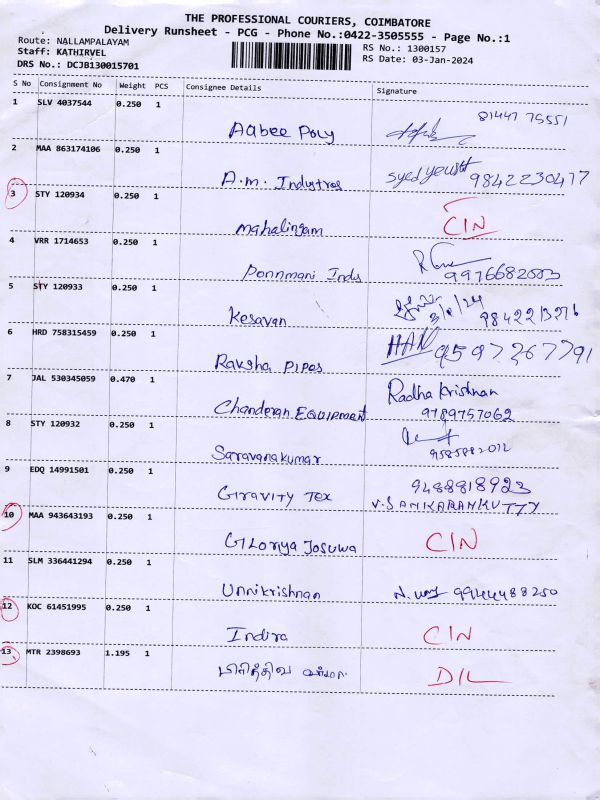 THE PROFESSIONAL COURIERS, COIMBATORE
Delivery Runsheet - PCG - Phone No.:0422-3505555 - Page No.:1
Route: NALLAMPALAYAM
Staff: KATHIRVEL
DRS No.: DCJB130015701
RS No.: 1300157
RS Date: 03-Jan-2024
S No Consignment No Weight PCS Consignee Details Signature
1 SLV 4037544 0.250 1
81447 75551
Aabee Poly
2 MAA 863174106 0.250 1
9842230477
A.M. Industres
3 STY 120934 0.250 1
Mahalingam CIN
4 VRR 1714653 0.250 1
Ponnmani Inds
5 STY 120933 0.250 1
Kesavan
6 HRD 758315459 0.250 1
Raksha Pipes 9597267791
7 JAL 530345059 0.470 1
Radha Krishnan
Chanderan EQUIPMENT 9789757062
8 STY 120932 0.250 1
Saravanakumar 9585882012
9 EDQ 14991501 0.250 1
9488818923
Giravity Tex V.SANKARANKUTTY
10 MAA 943643193 0.250 1
Giloriya Josuwa CIN
11 SLM 336441294 0.250 1
Unnikrishnan 9944488250
12 KOC 61451995 0.250 1
Indira CIN
13 MTR 2398693 1.195 1
DIL